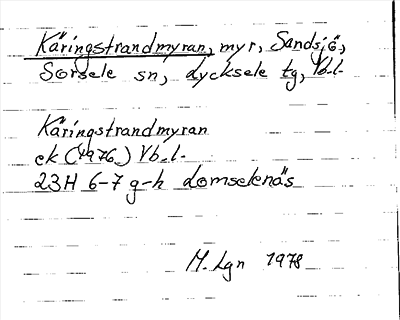 Käringstrandmyran, myr, Sandsjö,
Sorsele sn, Lycksele tg, Vb.l.
Käringstrandmyran
ek (1976) Vb.l.
23H 6-7 g-h Lomselenäs
M. Lgn 1978